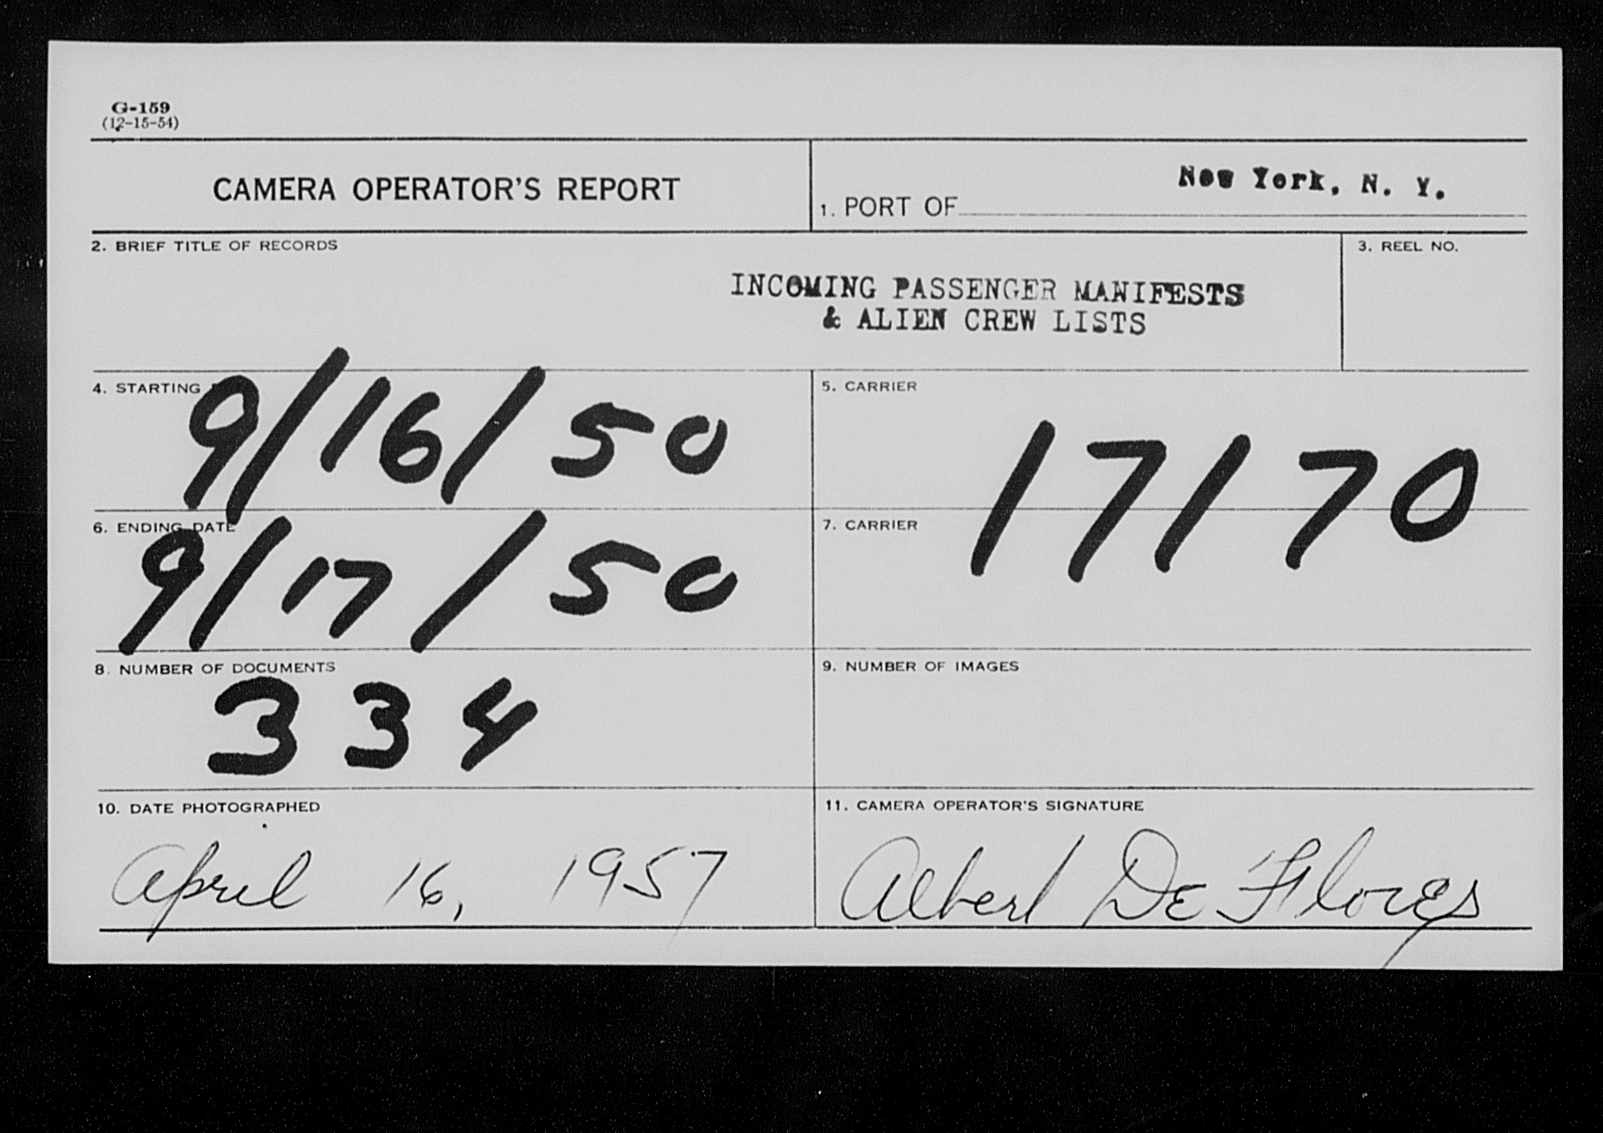 G-159
(12-15-54)
CAMERA OPERATOR'S REPORT
1. PORT OF New York, N. Y.
2. BRIEF TITLE OF RECORDS
INCOMING PASSENGER MANIFESTS
& ALIEN CREW LISTS
3. REEL NO.
4. STARTING
9/16/50
5. CARRIER
17170
6. ENDING DATE
9/17/50
7. CARRIER
8. NUMBER OF DOCUMENTS
334
9. NUMBER OF IMAGES
10. DATE PHOTOGRAPHED
April 16, 1957
11. CAMERA OPERATOR'S SIGNATURE
Albert De Flores